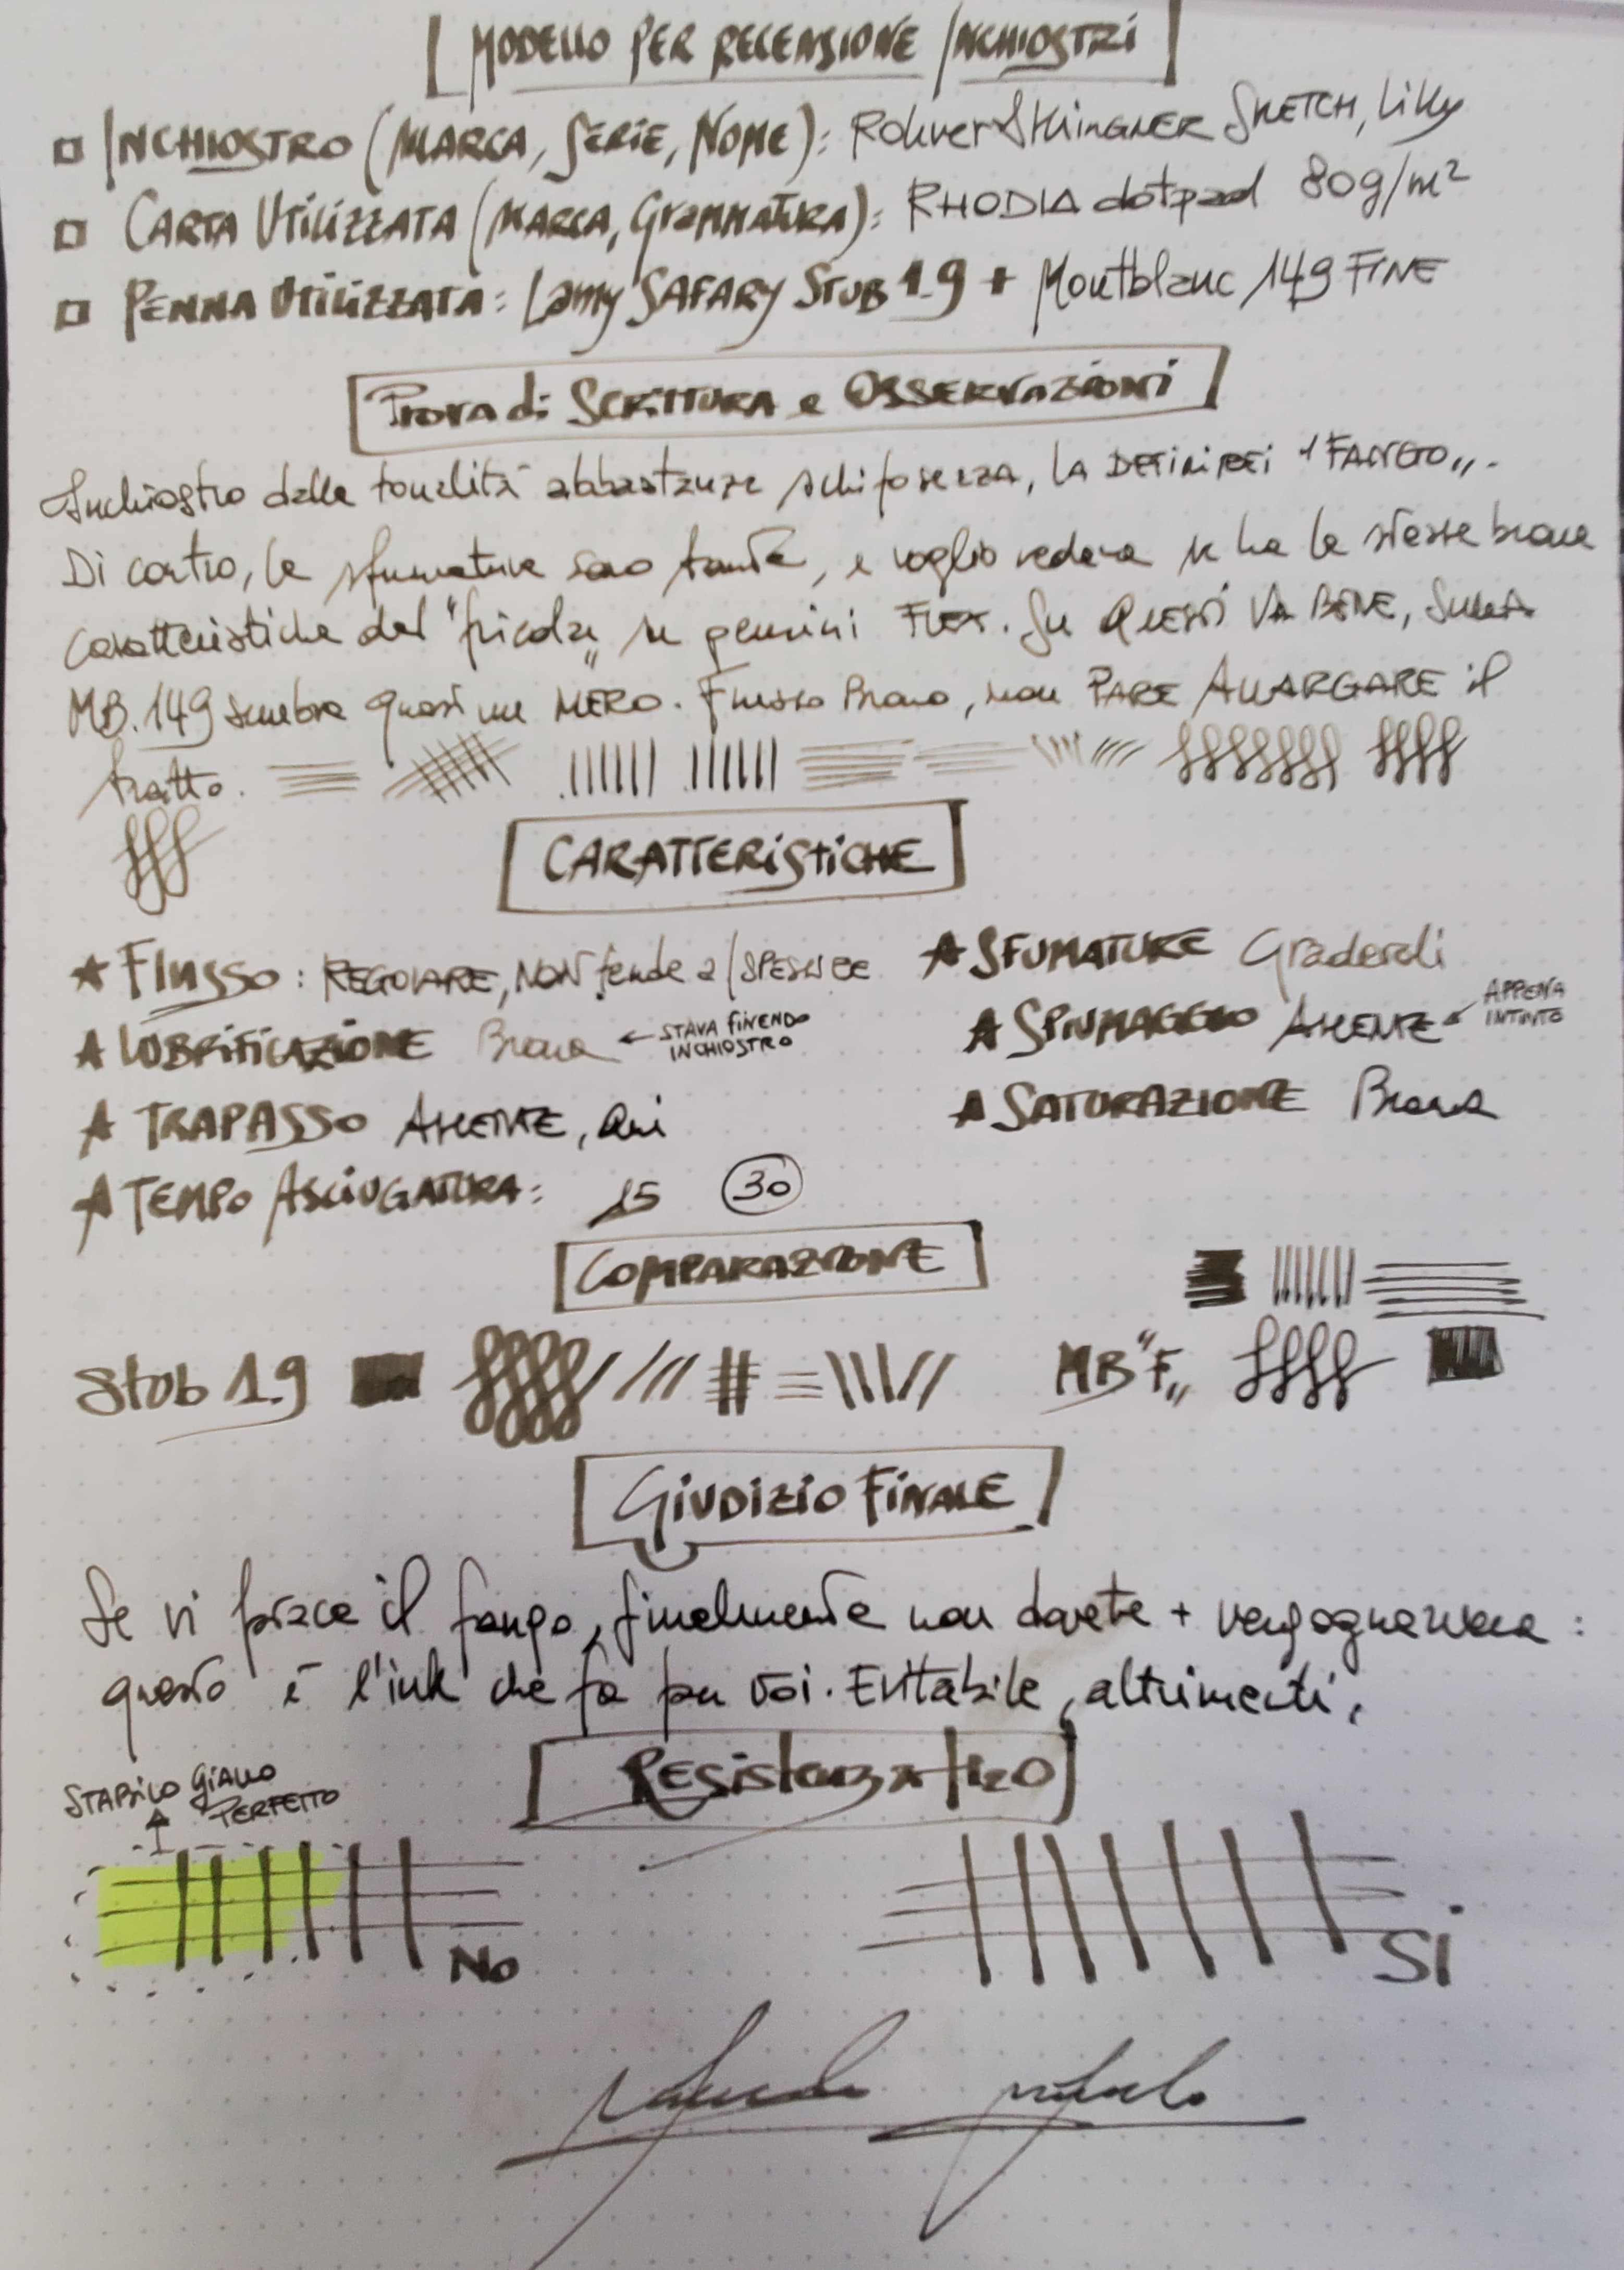 MODELLO PER RECENSIONE INCHIOSTRI
INCHIOSTRO (MARCA, SERIE, NOME): Rohrer&Klingner SKETCH, Lilly
CARTA UTILIZZATA (MARCA, Grammatura): RHODIA dotpad 80g/m²
PENNA UTILIZZATA: Lamy SAFARY STUB 1.9 + Montblanc 149 FINE
Prova di SCRITTURA e OSSERVAZIONI
Inchiostro dalla tonalità abbastanza schifosezza, LA DEFINIREI "FANGO".
Di contro, le sfumature sono tante, e voglio vedere se ha le stesse buone
caratteristiche del su pennini FLEX. Su QUESTI VA BENE, SULLA
MB.149 sembra quasi un NERO. Flusso Buono, non PARE ALLARGARE il
tratto.
CARATTERISTICHE
Flusso: REGOLARE, NON tende a
SFUMATURE Gradevoli
LUBRIFICAZIONE Buona ← STAVA FINENDO INCHIOSTRO
SPIUMAGGIO ASSENTE ← APPENA INTINTO
TRAPASSO ASSENTE, QUI
SATURAZIONE Buona
TEMPO ASCIUGATURA: 15 30
COMPARAZIONE
Stub 1.9
MB "F"
GIUDIZIO FINALE
Se vi piace il fango, finalmente non dovete + vergognarvene:
questo è l'ink che fa per voi. Evitabile, altrimenti.
Resistenza H2O
STABILO GIALLO
PERFETTO
No
Si